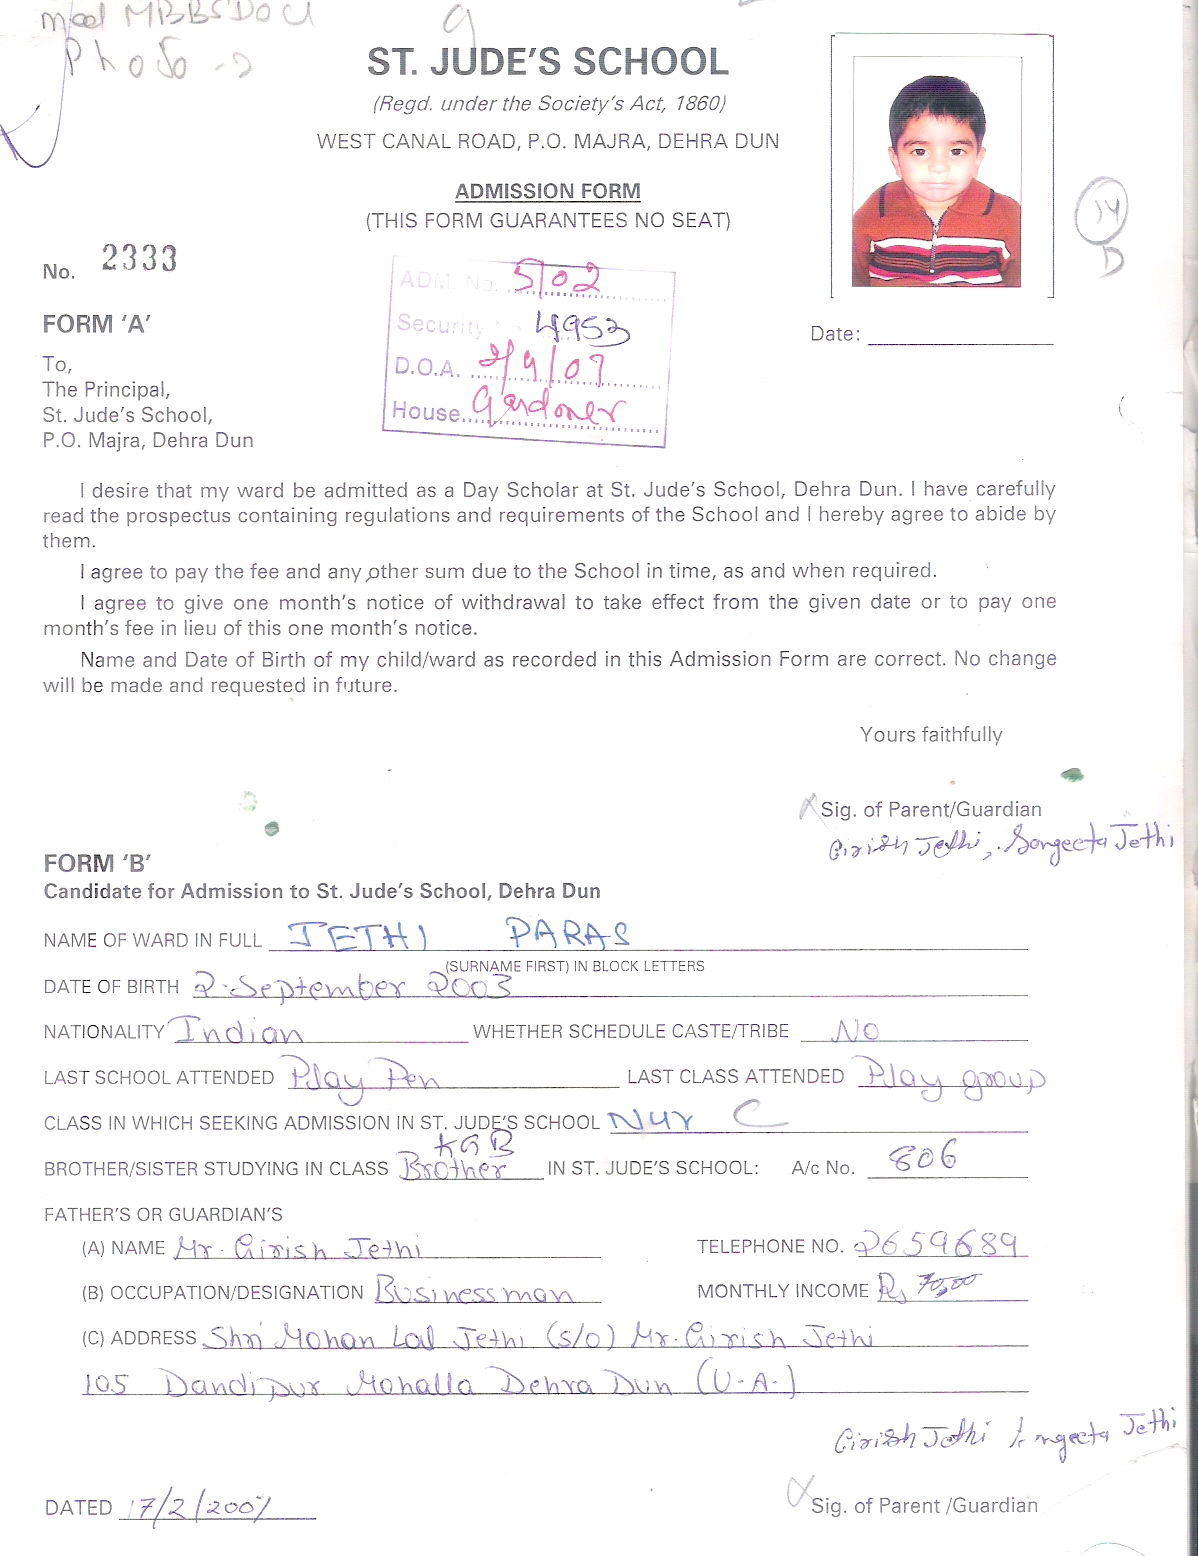 med MBBS DOCU
Photo - 2
9
ST. JUDE'S SCHOOL
(Regd. under the Society's Act, 1860)
WEST CANAL ROAD, P.O. MAJRA, DEHRA DUN
ADMISSION FORM
(THIS FORM GUARANTEES NO SEAT)
14
D
No. 2333
ADM. No. 5102
Security 4953
D.O.A. 2/9/07
House Gardoner
FORM 'A'
Date:
To,
The Principal,
St. Jude's School,
P.O. Majra, Dehra Dun
I desire that my ward be admitted as a Day Scholar at St. Jude's School, Dehra Dun. I have carefully
read the prospectus containing regulations and requirements of the School and I hereby agree to abide by
them.
I agree to pay the fee and any other sum due to the School in time, as and when required.
I agree to give one month's notice of withdrawal to take effect from the given date or to pay one
month's fee in lieu of this one month's notice.
Name and Date of Birth of my child/ward as recorded in this Admission Form are correct. No change
will be made and requested in future.
Yours faithfully
Sig. of Parent/Guardian
Girish Jethi, Sangeeta Jethi
FORM 'B'
Candidate for Admission to St. Jude's School, Dehra Dun
NAME OF WARD IN FULL JETHI PARAS
(SURNAME FIRST) IN BLOCK LETTERS
DATE OF BIRTH 2-September 2003
NATIONALITY Indian WHETHER SCHEDULE CASTE/TRIBE NO
LAST SCHOOL ATTENDED Play Pen LAST CLASS ATTENDED Play group
CLASS IN WHICH SEEKING ADMISSION IN ST. JUDE'S SCHOOL Nur C
KG B
BROTHER/SISTER STUDYING IN CLASS Brother IN ST. JUDE'S SCHOOL: A/c No. 806
FATHER'S OR GUARDIAN'S
(A) NAME Mr. Girish Jethi TELEPHONE NO. 2659689
(B) OCCUPATION/DESIGNATION Businessman MONTHLY INCOME Rs
(C) ADDRESS Shri Mohan Lal Jethi (s/o) Mr. Girish Jethi
105 Dandipur Mohalla Dehra Dun (U.A.)
Girish Jethi Sangeeta Jethi
DATED 17/2/2007 Sig. of Parent /Guardian